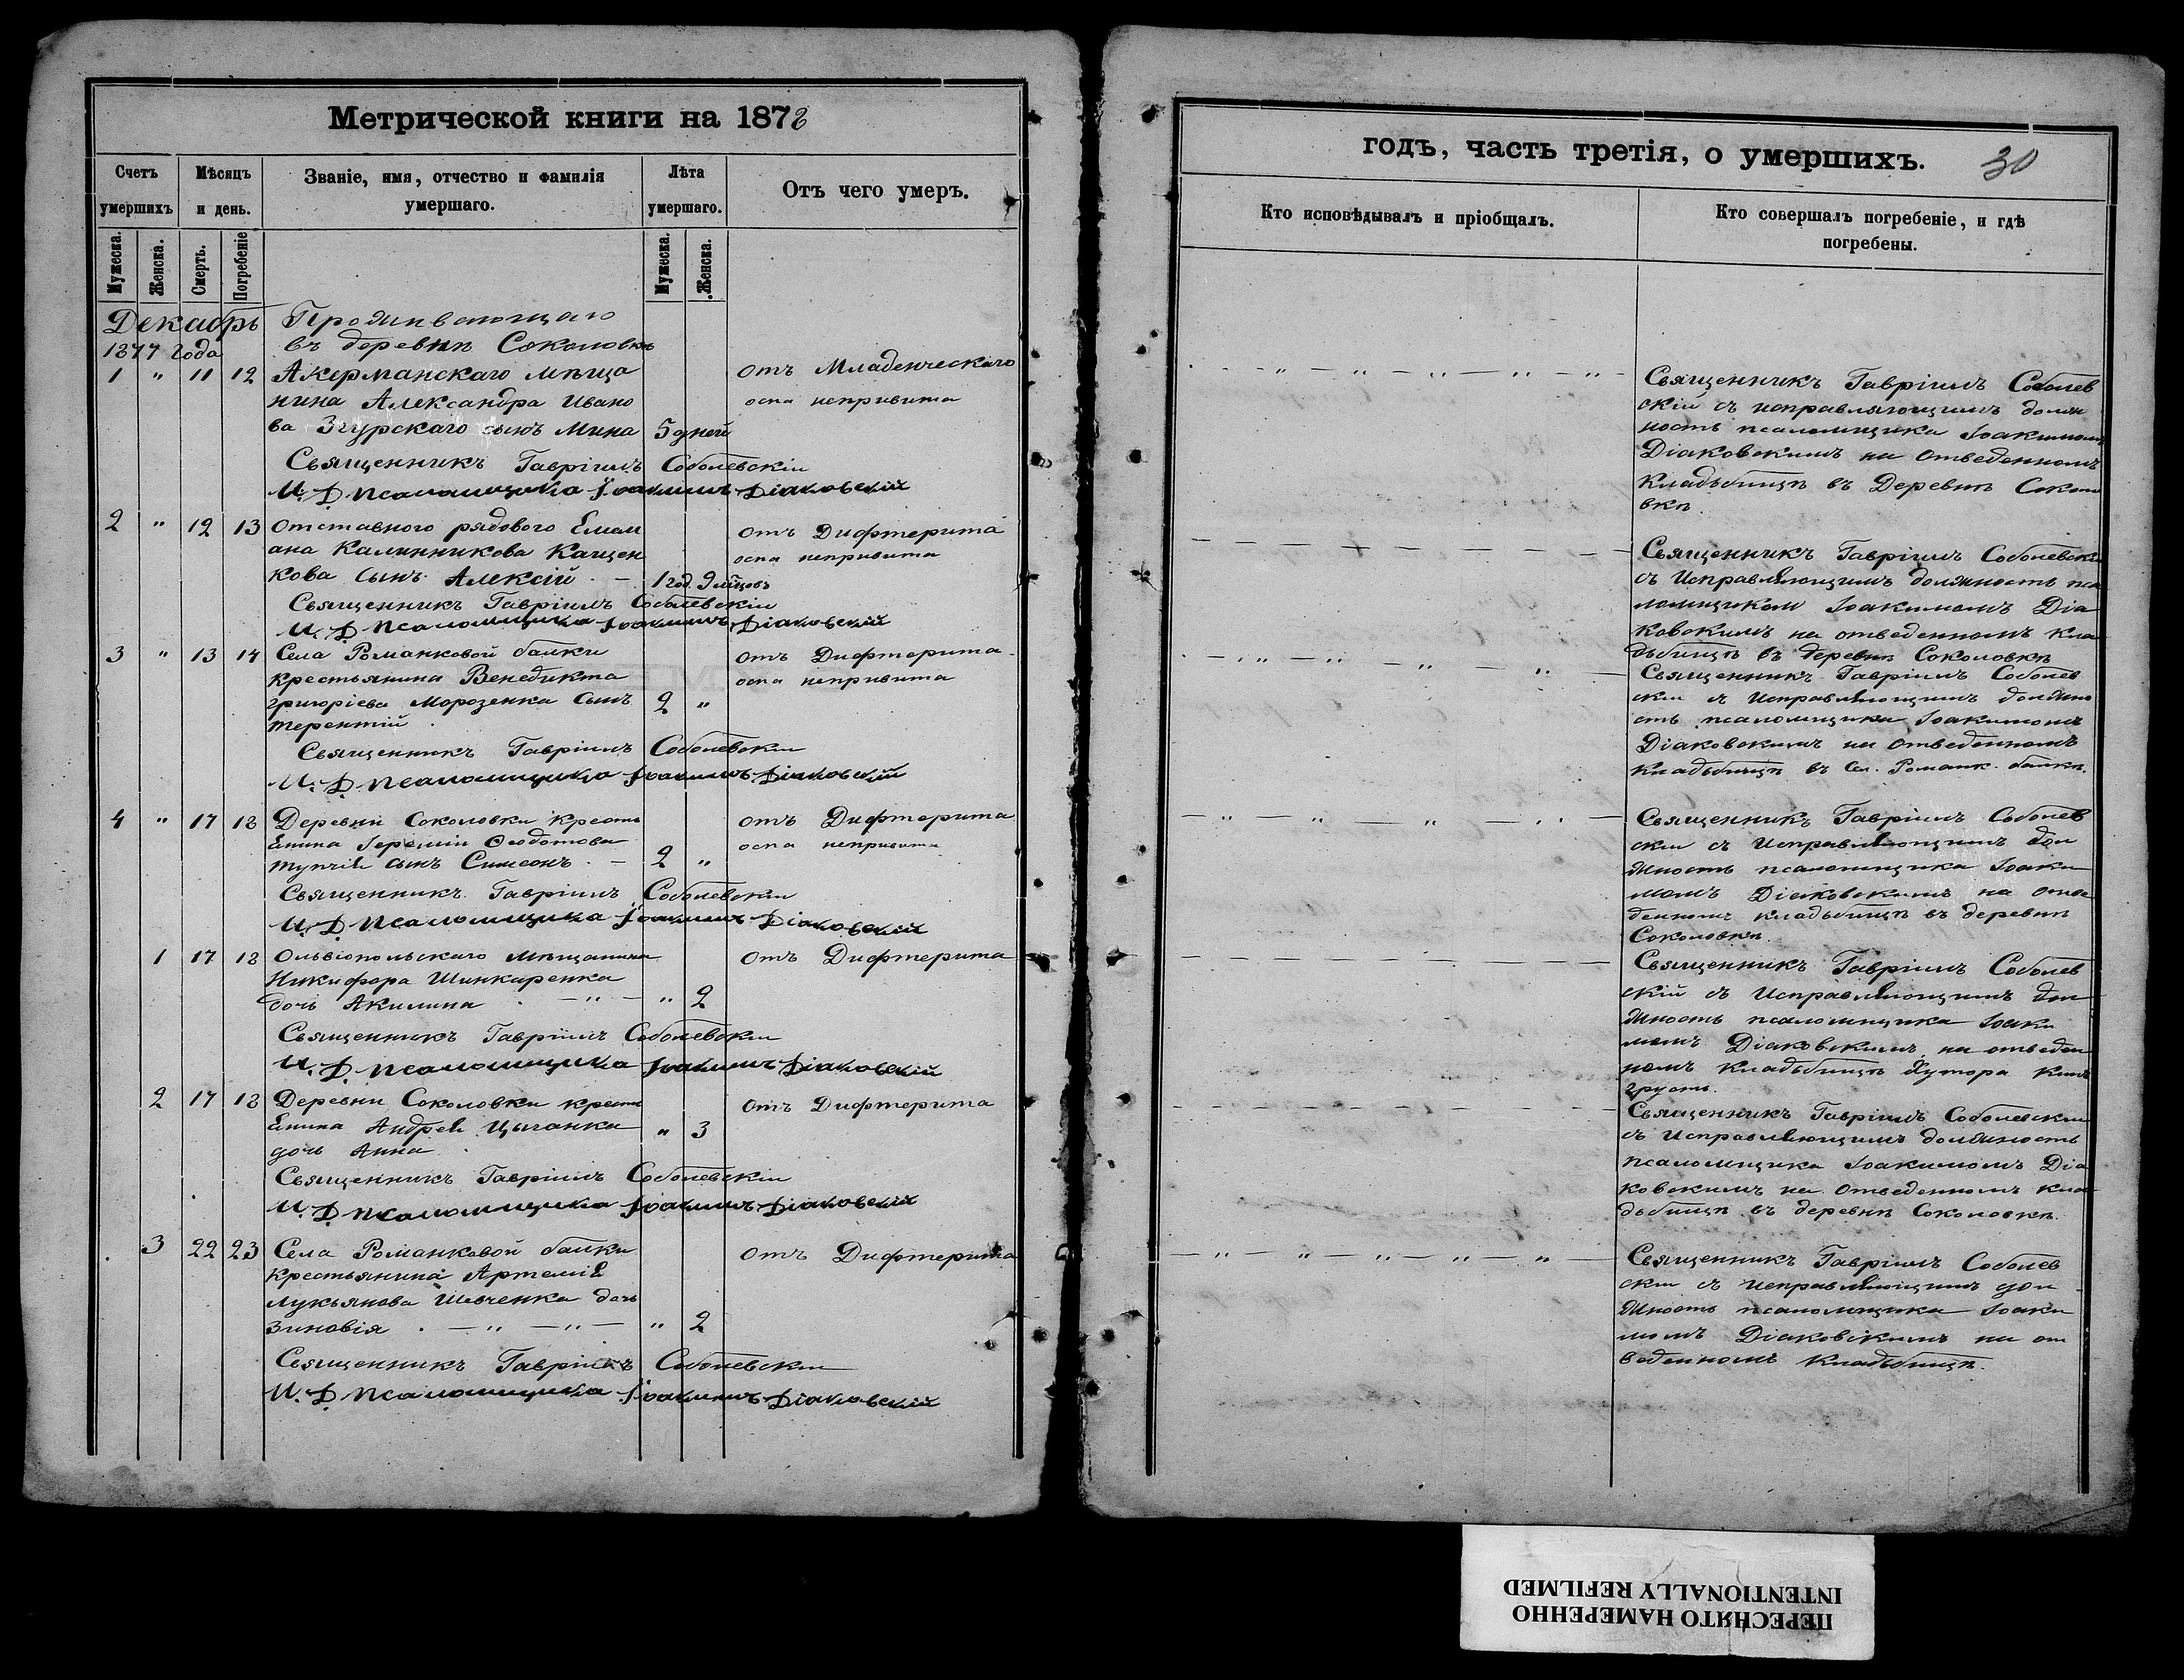 Метрической книги на 1878
Счетъ умершихъ
Мѣсяцъ и день.
Званіе, имя, отчество и фамилія умершаго.
Лѣта умершаго.
Отъ чего умеръ.
Мужеска. Женска. Смерть. Погребеніе Мужеска. Женска.
Декабрь
1877 года
Проживающаго
въ деревнѣ Соколовкѣ
1 " 11 12 Акерманскаго мѣща отъ Младенческаго
нина Александра Ивано оспа непривита
ва Згурскаго сынъ Мина 5 дней
Священникъ Гавріилъ Соболевскій
И. Д. псаломщика Іоакимъ Діаковскій
2 " 12 13 Отставного рядового Емел отъ Дифтерита
яна Калинникова Кащен оспа непривита
кова сынъ Алексій - 1 год. 9 мѣцовъ
Священникъ Гавріилъ Соболевскій
И. Д. псаломщика Іоакимъ Діаковскій
3 " 13 14 Села Романковой балки отъ Дифтерита
крестьянина Венедикта оспа непривита
Григоріева Морозенка сынъ 2 "
Терентій
Священникъ Гавріилъ Соболевскій
И. Д. псаломщика Іоакимъ Діаковскій
4 " 17 18 Деревни Соколовки кресть отъ Дифтерита
янина Іереміи Ѳеодотова оспа непривита
сынъ Симеонъ - 2 "
Священникъ Гавріилъ Соболевскій
И. Д. псаломщика Іоакимъ Діаковскій
1 17 18 Ольвіопольскаго мѣщанина отъ Дифтерита
Никифора Шинкаренка
дочь Акилина - " - " 2
Священникъ Гавріилъ Соболевскій
И. Д. псаломщика Іоакимъ Діаковскій
2 17 18 Деревни Соколовки кресть отъ Дифтерита
янина Андрея Цыганка " 3
дочь Анна
Священникъ Гавріилъ Соболевскій
И. Д. псаломщика Іоакимъ Діаковскій
3 22 23 Села Романковой балки отъ Дифтерита
крестьянина Артемія
Лукьянова Шевченка дочь
Зиновія - " - " - " 2
Священникъ Гавріилъ Соболевскій
И. Д. псаломщика Іоакимъ Діаковскій
годъ, часть третія, о умершихъ. 30
Кто исповѣдывалъ и пріобщалъ.
Кто совершалъ погребеніе, и гдѣ
погребены.
Священникъ Гавріилъ Соболев
скій съ исправляющимъ долж
ность псаломщика Іоакимомъ
Діаковскимъ на отведенномъ
кладбищѣ въ Деревнѣ Соколо
вкѣ.
Священникъ Гавріилъ Соболевскій
съ Исправляющимъ должность пса
ломщиком Іоакимомъ Діа
ковскимъ на отведенномъ кла
дбищѣ въ деревнѣ Соколовкѣ
Священникъ Гавріилъ Соболев
скій съ Исправляющимъ должно
сть псаломщика Іоакимомъ
Діаковскимъ на отведенномъ
кладбищѣ въ Сел. Романк. балкѣ.
Священникъ Гавріилъ Соболев
скій съ Исправляющимъ дол
жность псаломщика Іоаки
момъ Діаковскимъ на отве
денномъ кладбищѣ въ деревнѣ
Соколовкѣ.
Священникъ Гавріилъ Соболев
скій съ Исправляющимъ дол
жность псаломщика Іоаки
момъ Діаковскимъ на отведен
номъ кладбищѣ Хутора

Священникъ Гавріилъ Соболевскій
съ Исправляющимъ должность
псаломщика Іоакимомъ Діа
ковскимъ на отведенномъ кла
дбищѣ въ деревнѣ Соколовкѣ.
Священникъ Гавріилъ Соболев
скій съ исправляющимъ дол
жность псаломщика Іоаки
момъ Діаковскимъ на от
веденномъ кладбищѣ.
ПЕРЕСНЯТО НАМЕРЕННО
INTENTIONALLY REFILMED